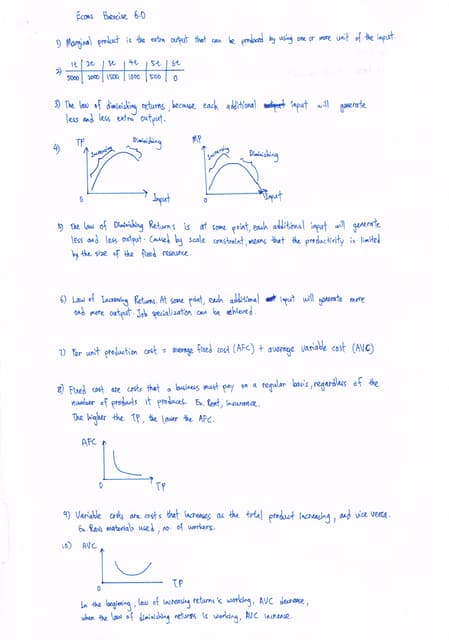 Econs Exercise 6.0
1) Marginal product is the extra output that can be produced by using one or more unit of the input.
2) 1t 2t 3t 4t 5t 6t
5000 2000 1500 1000 500 0
3) The law of diminishing returns, because each additional input will generate
less and less extra output.
4) TP Increasing Diminishing 0 Input MP Increasing Diminishing 0 Input
5) The law of Diminishing Returns is at some point, each additional input will generate
less and less output. Caused by scale constraint, means that the productivity is limited
by the size of the fixed resource.
6) Law of Increasing Returns. At some point, each additional input will generate more
and more output. Job specialization can be achieved.
7) Per unit production cost = average fixed cost (AFC) + average variable cost (AVC)
8) Fixed cost are costs that a business must pay on a regular basis, regardless of the
number of products it produces. Ex. Rent, insurance.
The higher the TP, the lower the AFC.
AFC
0 TP
9) Variable costs are costs that increases as the total product increasing, and vice versa.
Ex. Raw materials used, no. of workers.
10) AVC
0 TP
In the beginning, law of increasing returns is working, AVC decrease,
when the law of diminishing returns is working, AVC increase.